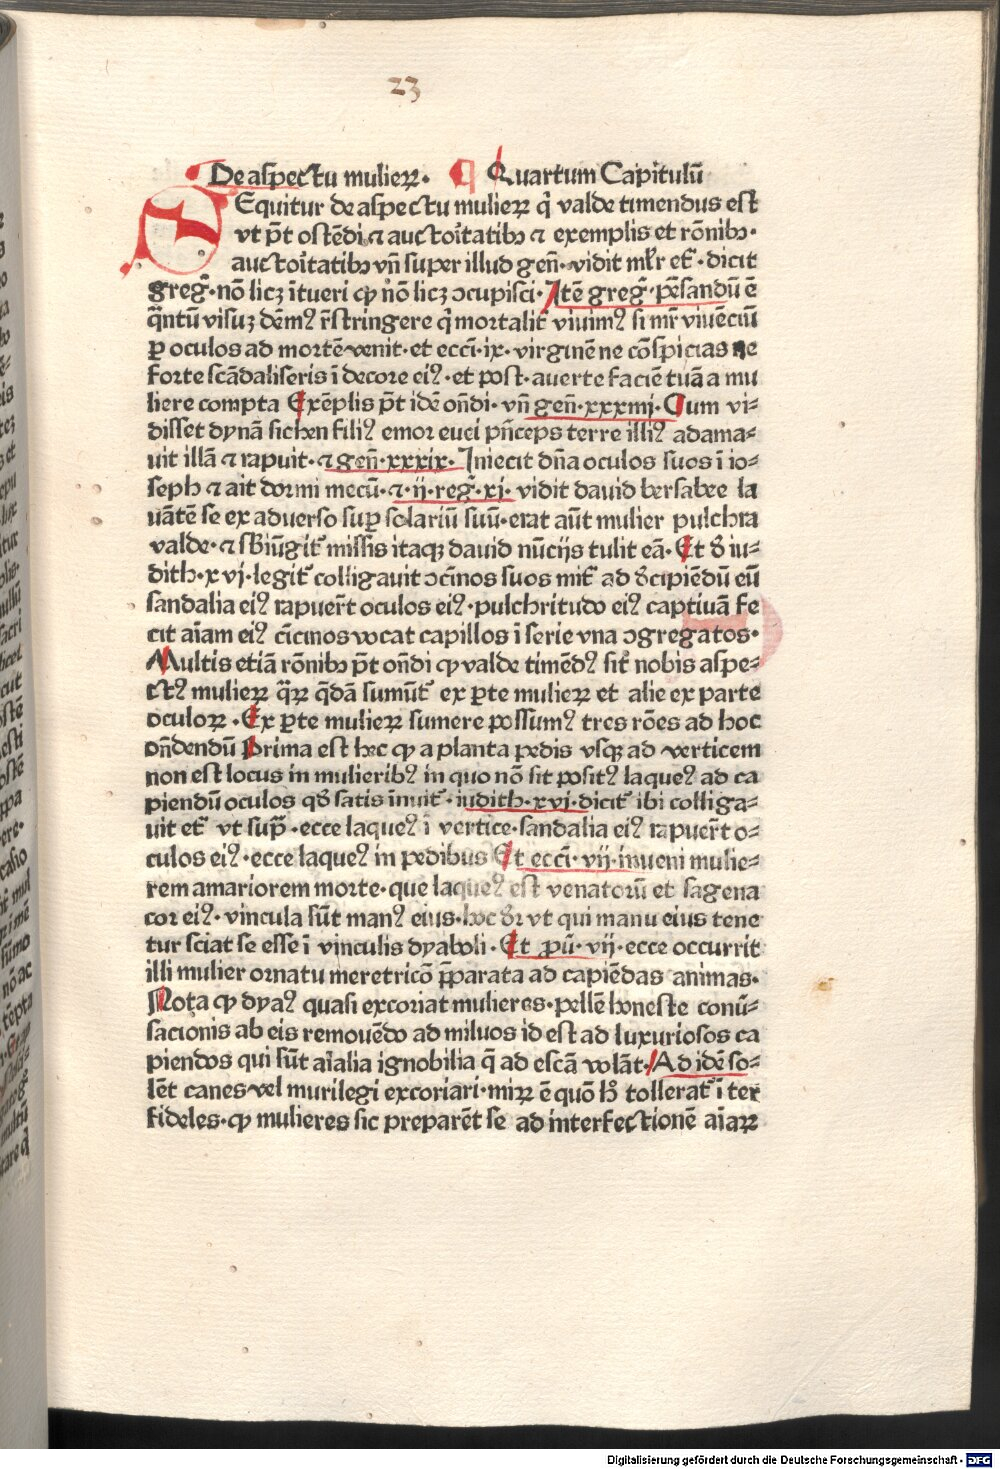 23
De aspectu mulieꝝ. ¶ Quartum Capitulū
SEquitur de aspectu mulieꝝ q̄ valde timendus est
vt pꝫt ostēdi ⁊ auctoītatibꝫ ⁊ exemplis et rōnibꝫ.
auctoītatibꝫ vn̄ super illud gen̄. vidit ml̄r et̄. dicit
greg̃. nō licꝫ ītueri ꝙ nō licꝫ ↄcupisci. Itē greg̃. pēsandū ē
q̄ntū visuꝫ dēmꝰ r̄stringere q̄ mortalit̄ viuimꝰ si mr̄ viuēciū
ꝑ oculos ad mortē venit. et eccī. ix. virginē ne cōspicias ne
forte scādaliseris ī decore eiꝰ. et post. auerte faciē tuā a mu
liere compta Exēplis pꝫt idē on̄di. vn̄ gen̄. xxxiiij. Cum vi⸗
disset dynā sichen filiꝰ emor euei pn̄ceps terre illiꝰ adama⸗
uit illā ⁊ rapuit. ⁊ gen̄. xxxix. Iniecit dn̄a oculos suos ī io⸗
seph ⁊ ait dormi mecū. ⁊. ij. reg̃. xi. vidit dauid bersabee la
uātē se ex aduerso suꝑ solariū suū. erat aūt mulier pulchra
valde. ⁊ sBiūgit̄ missis itaqꝫ dauid nūcijs tulit eā. Et ð iu⸗
dith. xvj. legit̄ colligauit ↄcīnos suos mit̄ ad ðcipiēdū eū
sandalia eiꝰ rapuer̄t oculos eiꝰ. pulchritudo eiꝰ captiuā fe
cit aīam eiꝰ cīcinos vocat capillos ī serie vna ↄgregatos.
Multis etiā rōnibꝫ pꝫt on̄di ꝙ valde timēdꝰ sit̄ nobis aspe⸗
ctꝰ mulieꝝ q̄ꝝ q̄dā sumūt̄ ex ꝑte mulieꝝ et alie ex parte
oculoꝝ. Ex ꝑte mulieꝝ sumere possumꝰ tres rōes ad hoc
on̄dendū Prima est hec ꝙ a planta pedis vsqꝫ ad verticem
non est locus in mulieribꝰ in quo nō sit positꝰ laqueꝰ ad ca
piendū oculos qð satis īnuit̄. iudith. xvj. dicit̄ ibi colliga⸗
uit et̄ vt sup̄. ecce laqueꝰ ī vertice. sandalia eiꝰ rapuer̄t o⸗
culos eiꝰ. ecce laqueꝰ in pedibus Et eccī. vij. inueni mulie⸗
rem amariorem morte. que laqueꝰ est venatorū et sagena
cor eiꝰ. vincula sūt manꝰ eius. hoc ðr vt qui manu eius tene
tur sciat se esse ī vinculis dyaboli. Et ꝓū. vij. ecce occurrit
illi mulier ornatu meretricō p̄parata ad capiēdas animas.
Nota ꝙ dyaꝰ quasi excoriat mulieres. pellē honeste conū⸗
sacionis ab eis remouēdo ad miluos id est ad luxuriosos ca
piendos qui sūt aīalia ignobilia q̄ ad escā volāt. Ad idē so⸗
lēt canes vel murilegi excoriari. miꝝ ē quō h̄ tollerat̄ ī ter
fideles. ꝙ mulieres sic preparēt se ad interfectionē aīaꝝ
Digitalisierung gefördert durch die Deutsche Forschungsgemeinschaft - DFG